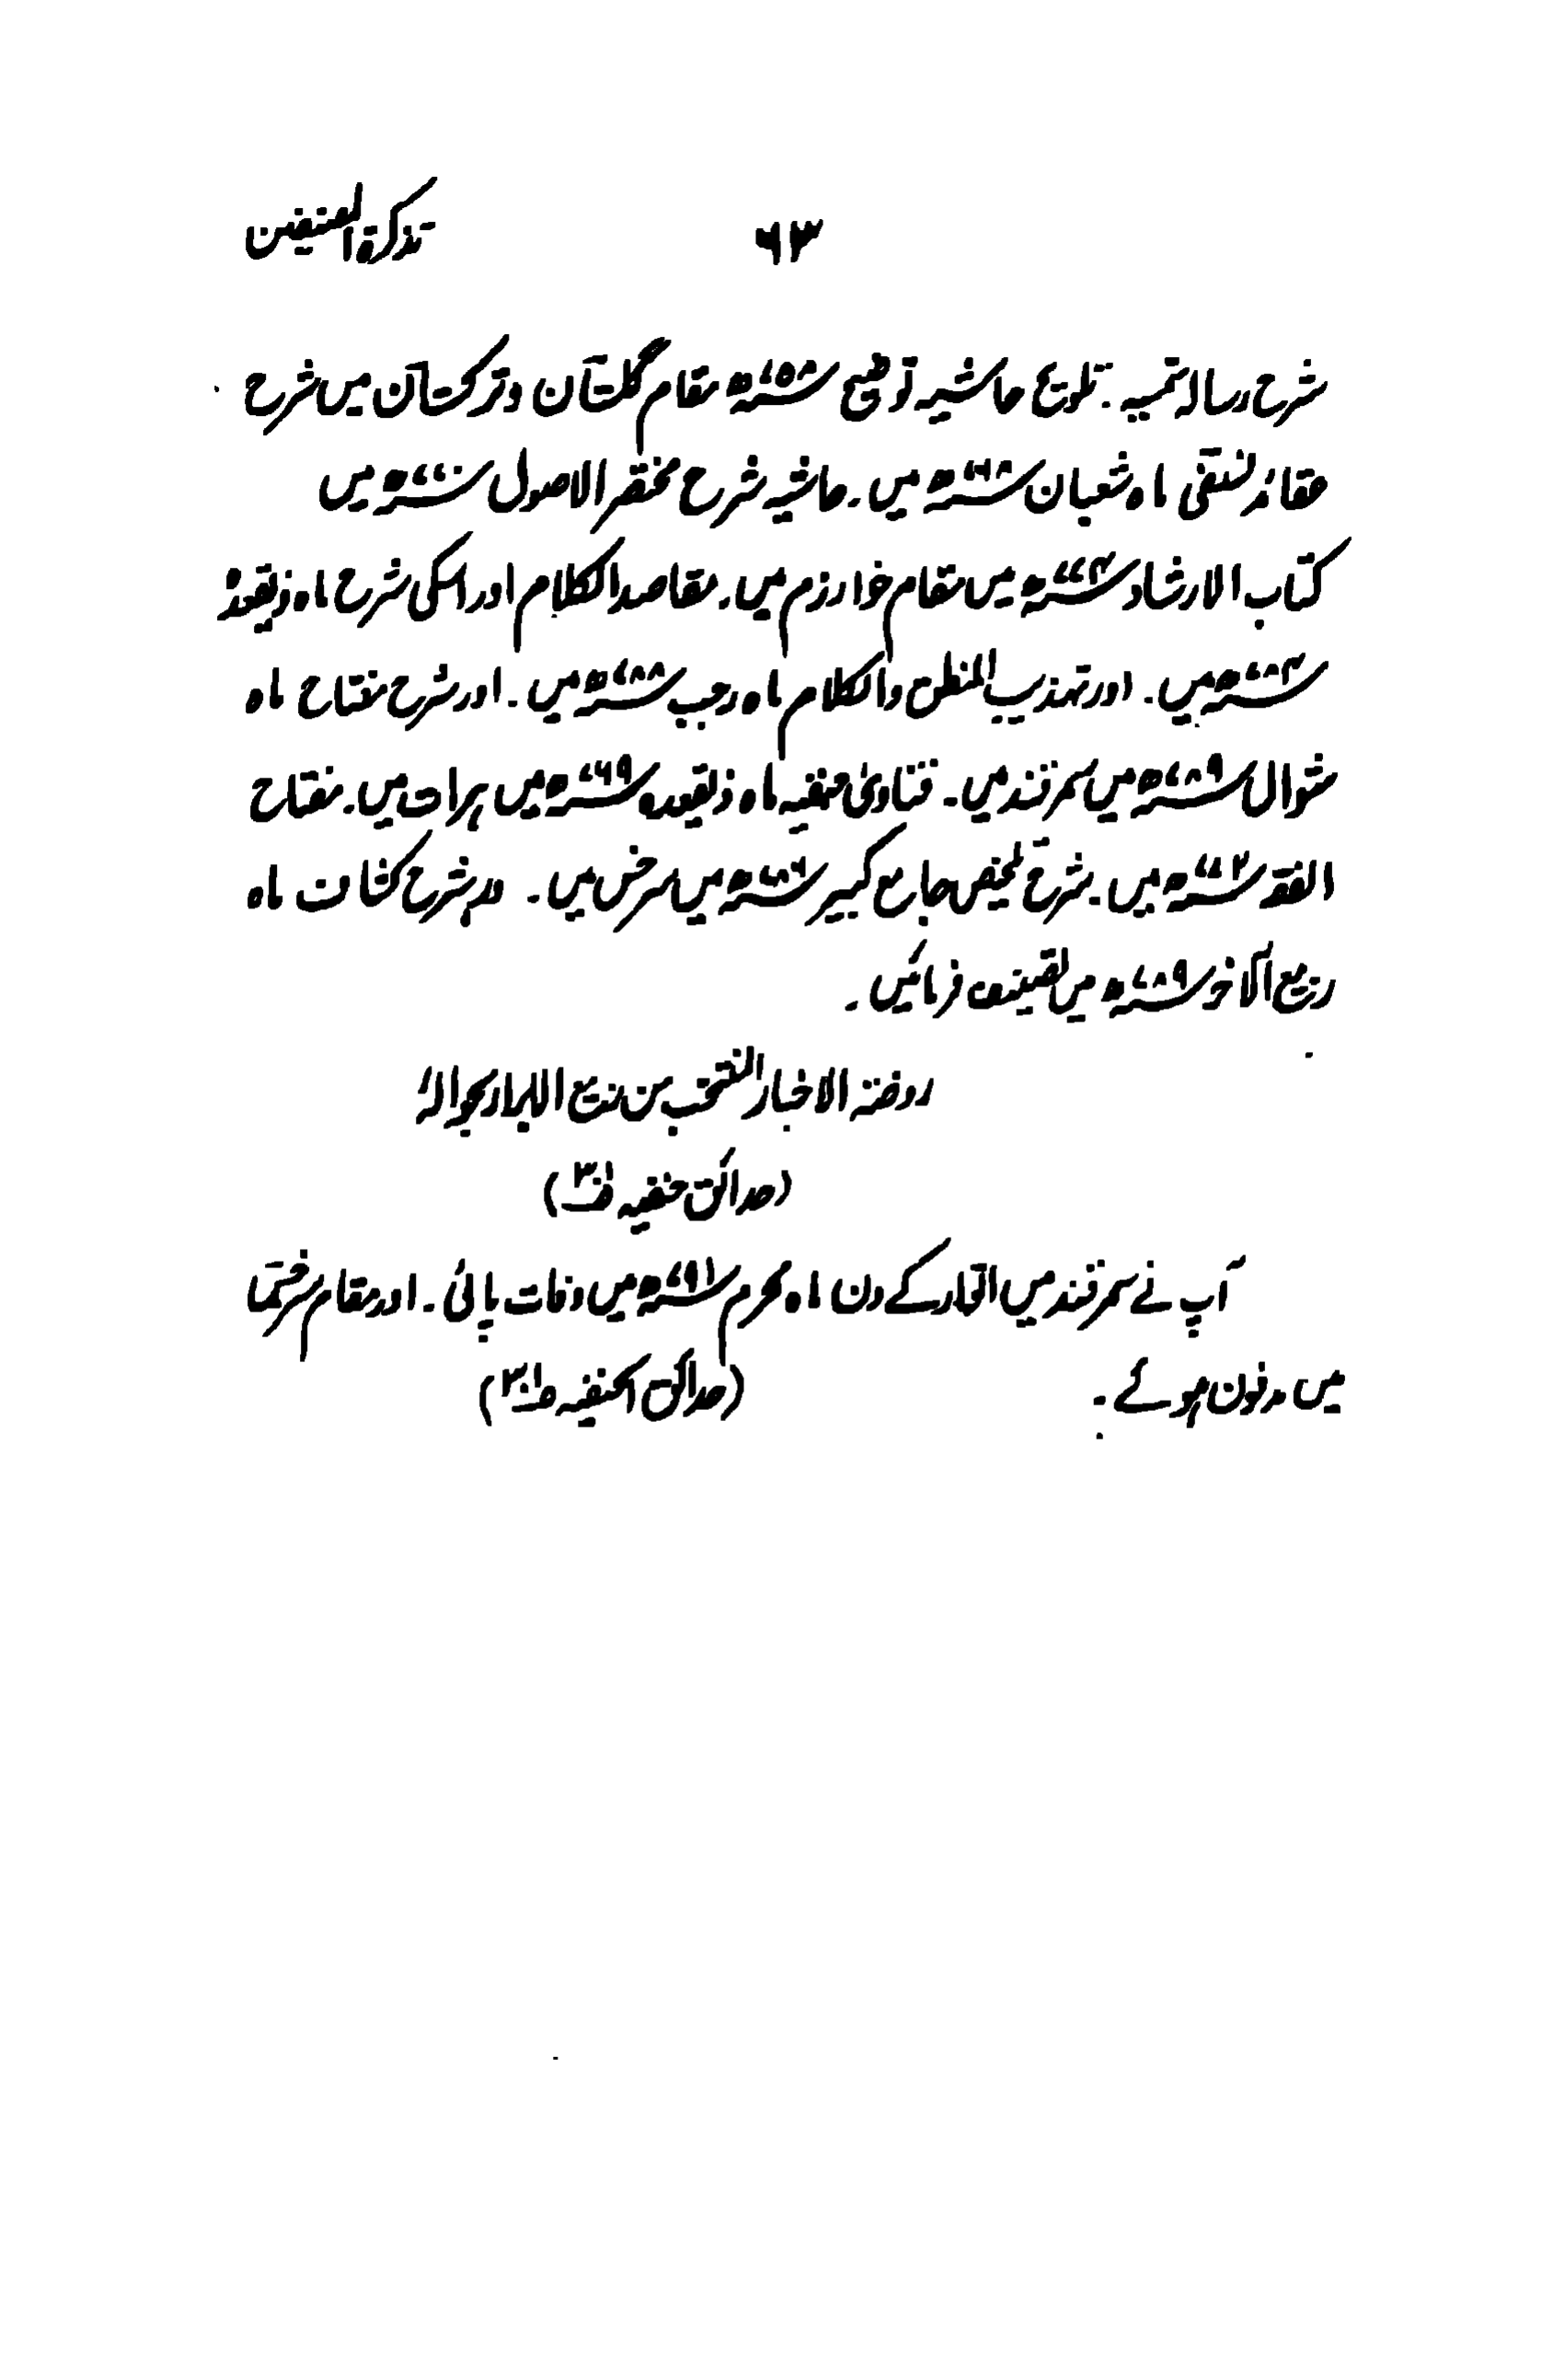 تذکرۃ المصنفین ۶۳
شرح رسالہ شمسیہ۔ تلویح حاشیہ توضیح ۷۵۸ھ مقام گلستان و ترکستان میں شرح
عقائد نسفی ماہ شعبان ۷۶۸ھ میں۔ حاشیہ شرح مختصر الاصول ۷۷۰ھ میں
کتاب الارشاد ۷۷۴ھ میں مقام خوارزم میں۔ مقاصد الکلام اور اسکی شرح ماہ ذیقعدہ
۷۸۴ھ میں۔ اور تہذیب المنطق والکلام ماہ رجب ۷۸۸ھ میں۔ اور شرح مفتاح ماہ
شوال ۷۸۹ھ میں سمرقند میں۔ فتاویٰ حنفیہ ماہ ذیقعدہ ۷۶۹ھ میں ہرات میں۔ مفتاح
الفقہ ۷۷۲ھ میں۔ شرح تلخیص جامع کبیر میں سرخس میں۔ اور شرح کشاف ماہ
ربیع الآخر ۷۸۹ھ میں تصنیف فرمائیں۔
روضۃ الاخبار المنتخب من ربیع الابرار بحوالہ
(حدائق حنفیہ ص۳۰۱)
آپ نے سمرقند میں اتوار کے دن ماہ محرم ۷۹۱ھ میں وفات پائی۔ اور مقام سرخس
میں مدفون ہوئے۔ (حدائق الحنفیہ ص۳۰۱)